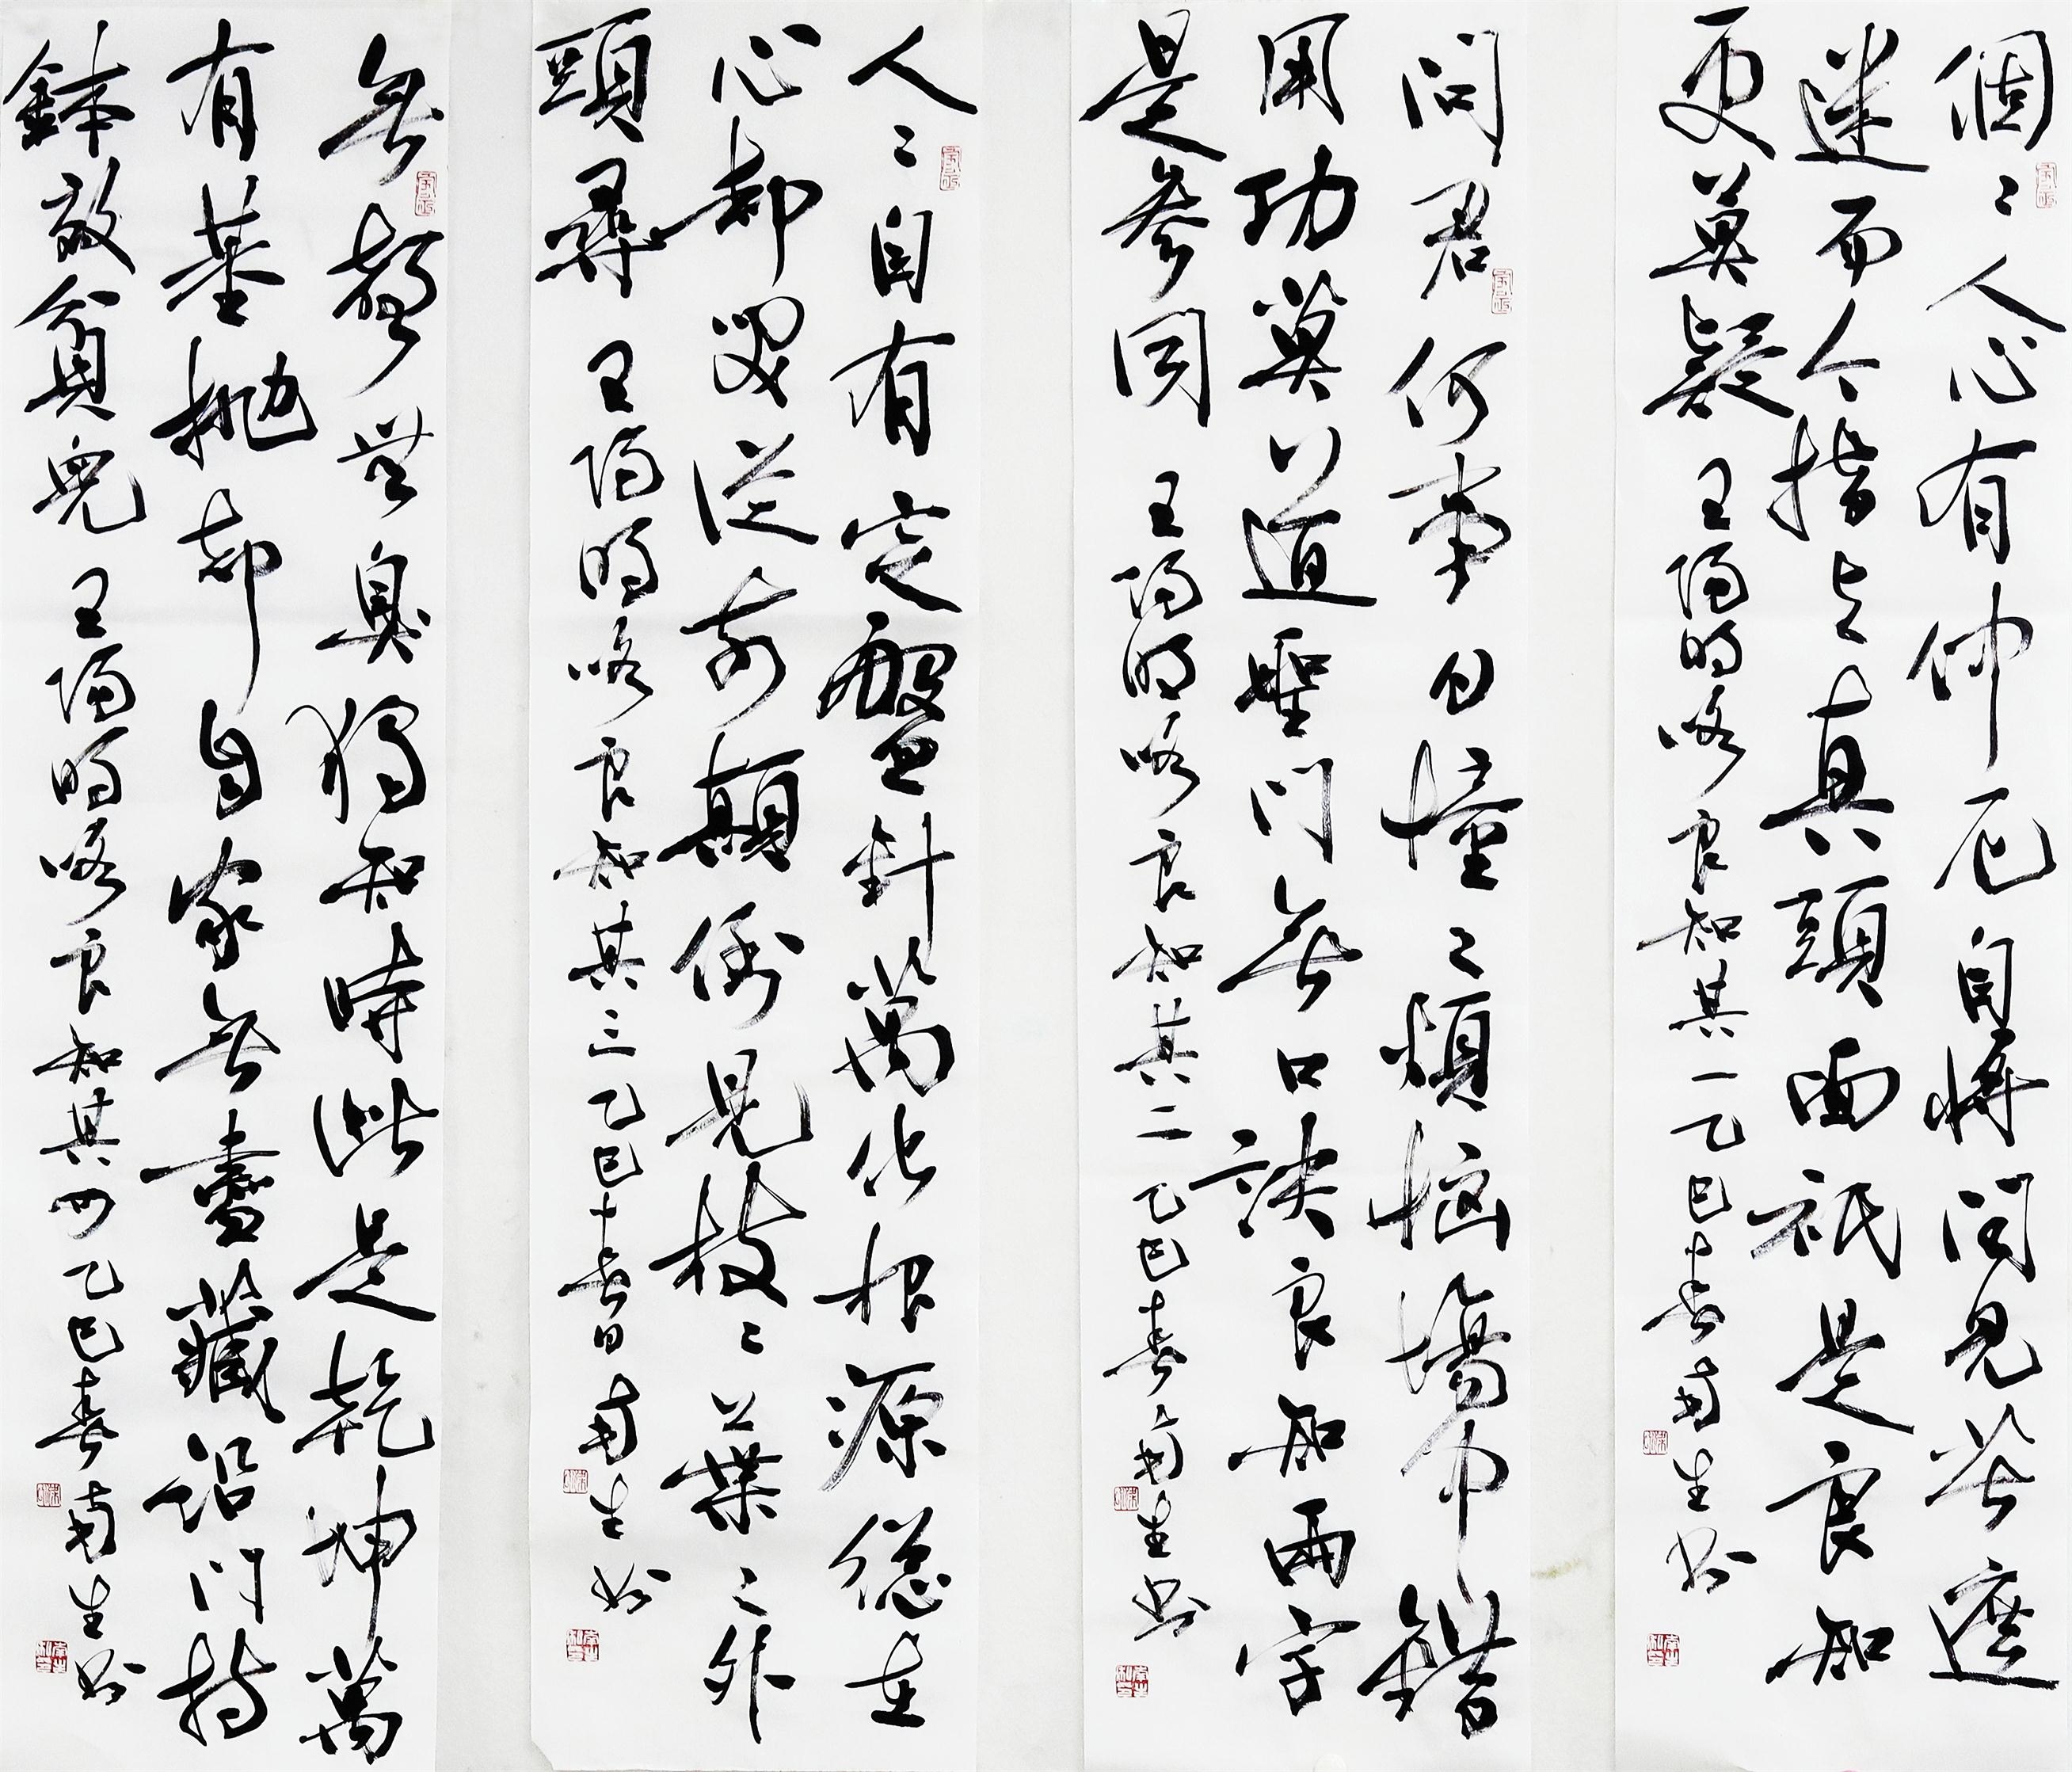 個〻人心有仲尼自將聞見苦遮
迷而今指与真頭面祇是良知
更莫疑 王陽明咏良知其一乙巳春南生书
問君何事日憧〻煩惱場中錯
用功莫道聖門無口訣良知兩字
是參同 王陽明咏良知其二乙巳春南生书
人〻自有定盤針萬化根源總在
心却笑從前顛倒見枝〻葉〻外
頭尋 王陽明咏良知其三乙巳春日南生书
無聲無臭獨知時此是乾坤萬
有基拋却自家無盡藏沿門持
鉢效貧兒 王陽明咏良知其四乙巳春南生书